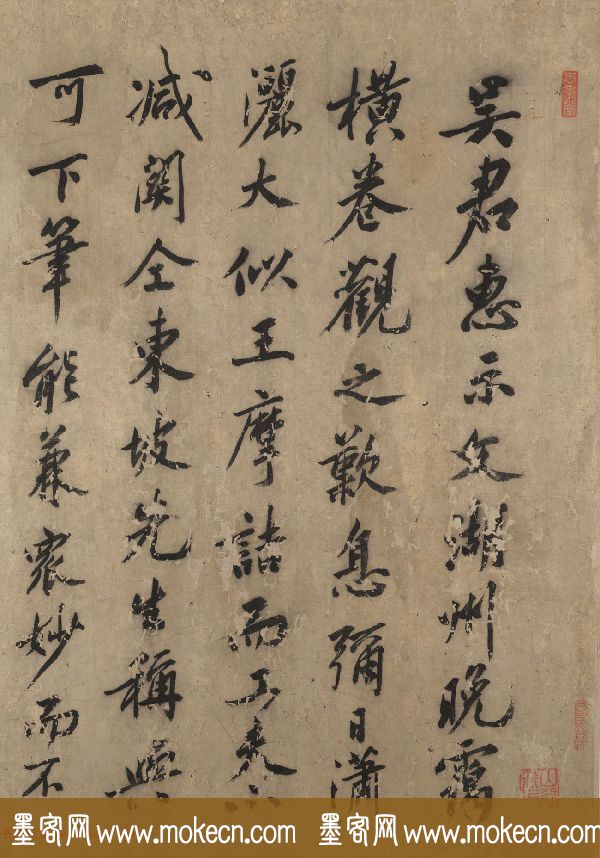 吳君惠示文湖州晚靄
橫卷觀之歎息彌日瀟
灑大似王摩詰而工夫
減關仝東坡先生稱與
可下筆能兼衆妙而不
墨客网www.mokecn.com 墨客网www.mokecn.com